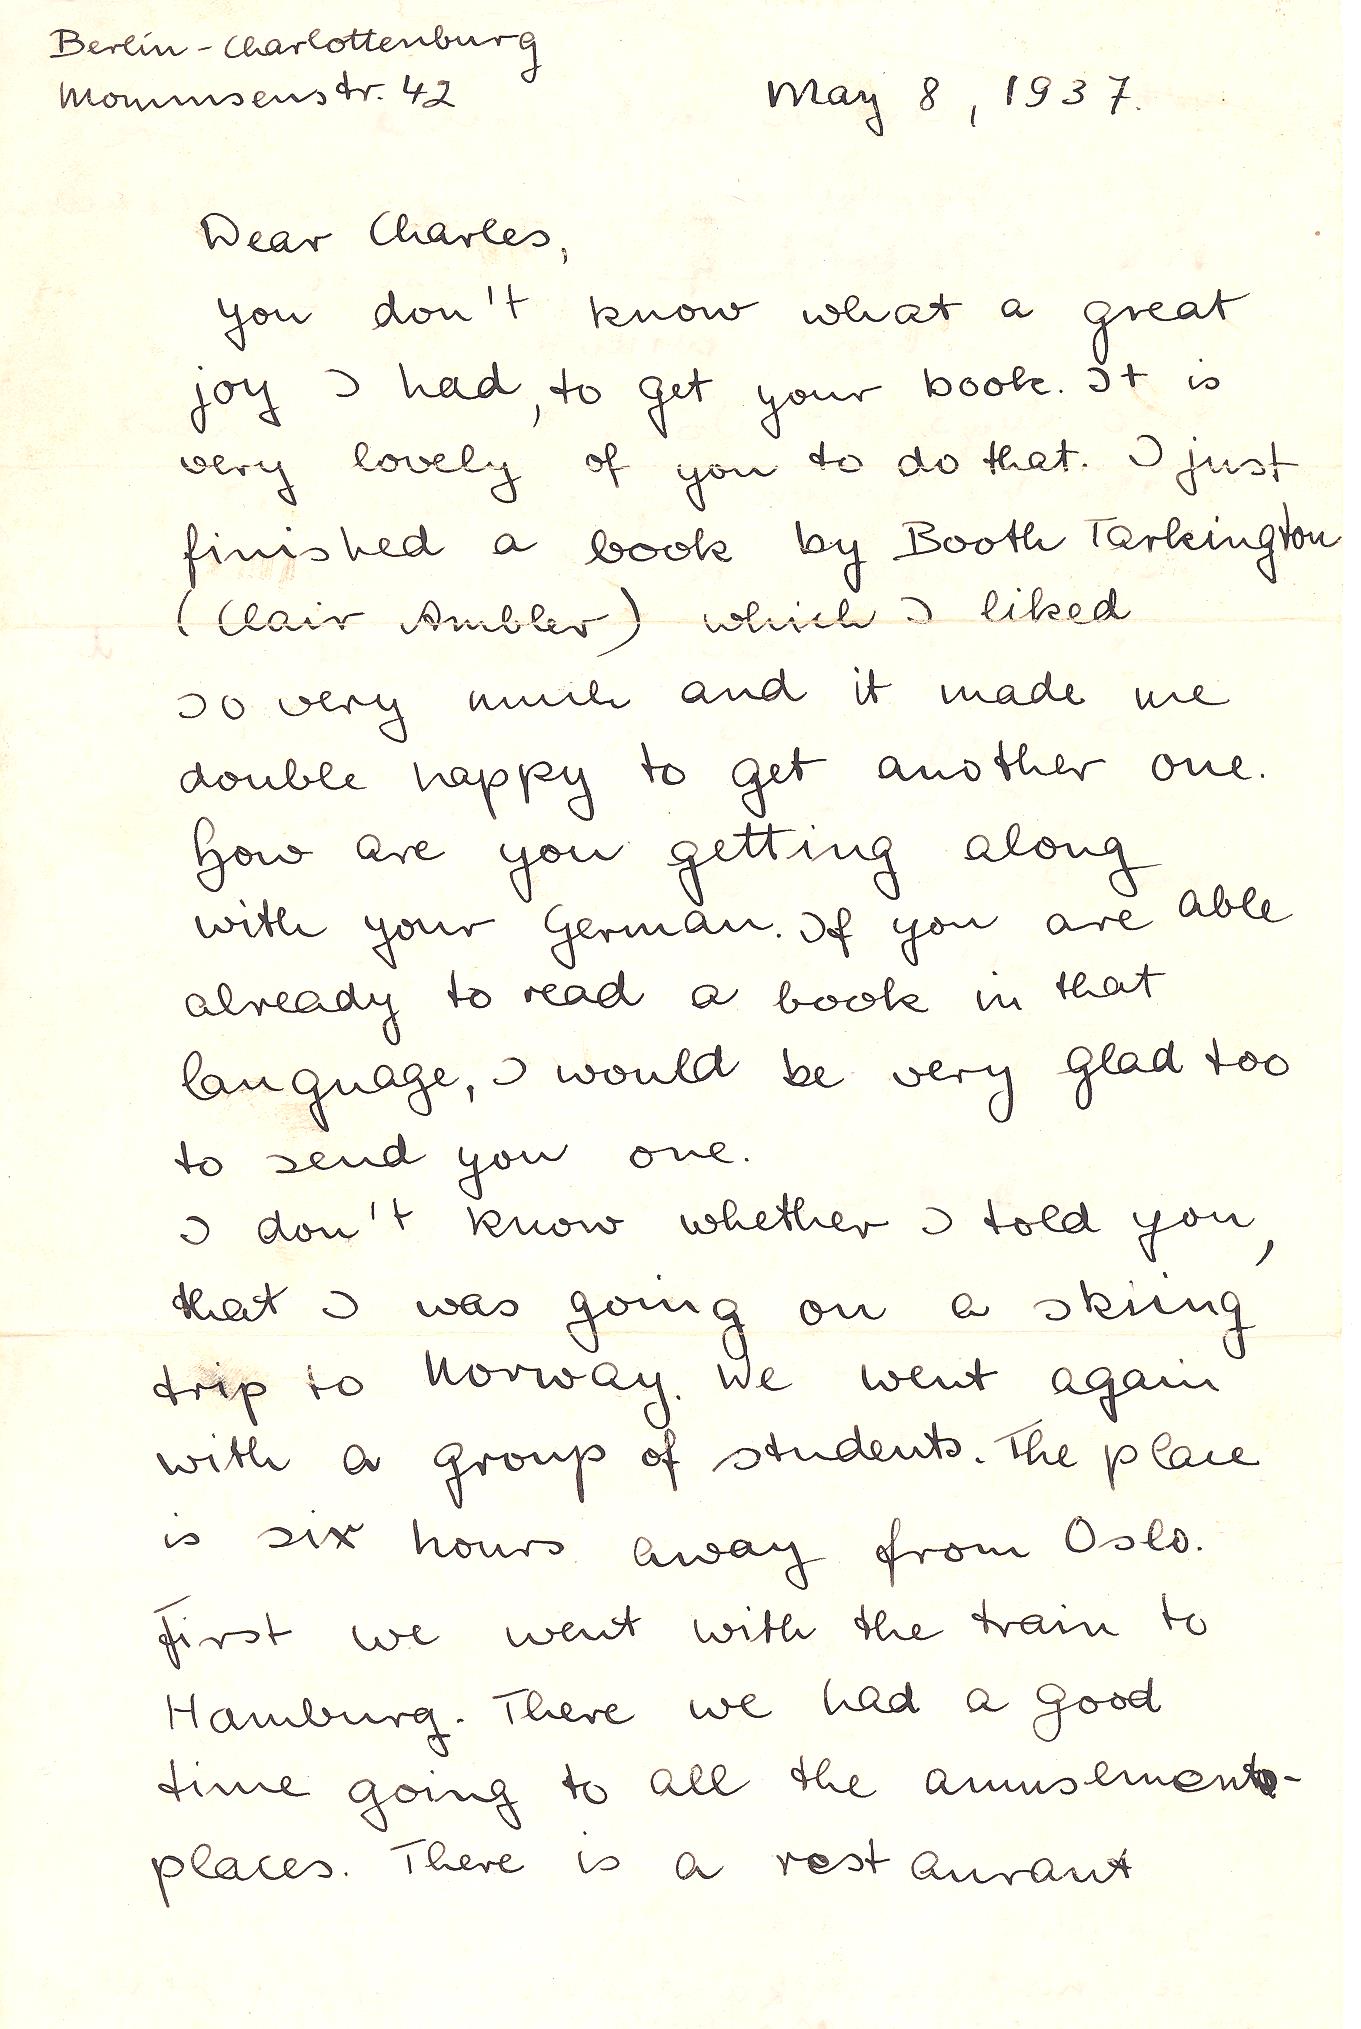 Berlin-Charlottenburg
Mommsenstr. 42
May 8, 1937.
Dear Charles,
you don't know what a great
joy I had, to get your book. It is
very lovely of you to do that. I just
finished a book by Booth Tarkington
(Clair Ambler) which I liked
so very much and it made me
double happy to get another one.
How are you getting along
with your German. If you are able
already to read a book in that
language, I would be very glad too
to send you one.
I don't know whether I told you,
that I was going on a skiing
trip to Norway. We went again
with a group of students. The place
is six hours away from Oslo.
First we went with the train to
Hamburg. There we had a good
time going to all the amusements-
places. There is a restaurant